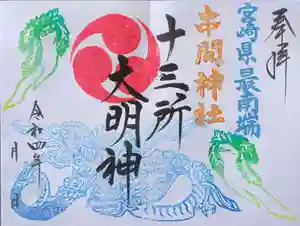 奉拝
宮崎県最南端
本間神社
十三所
大明神
令和四年
月 日